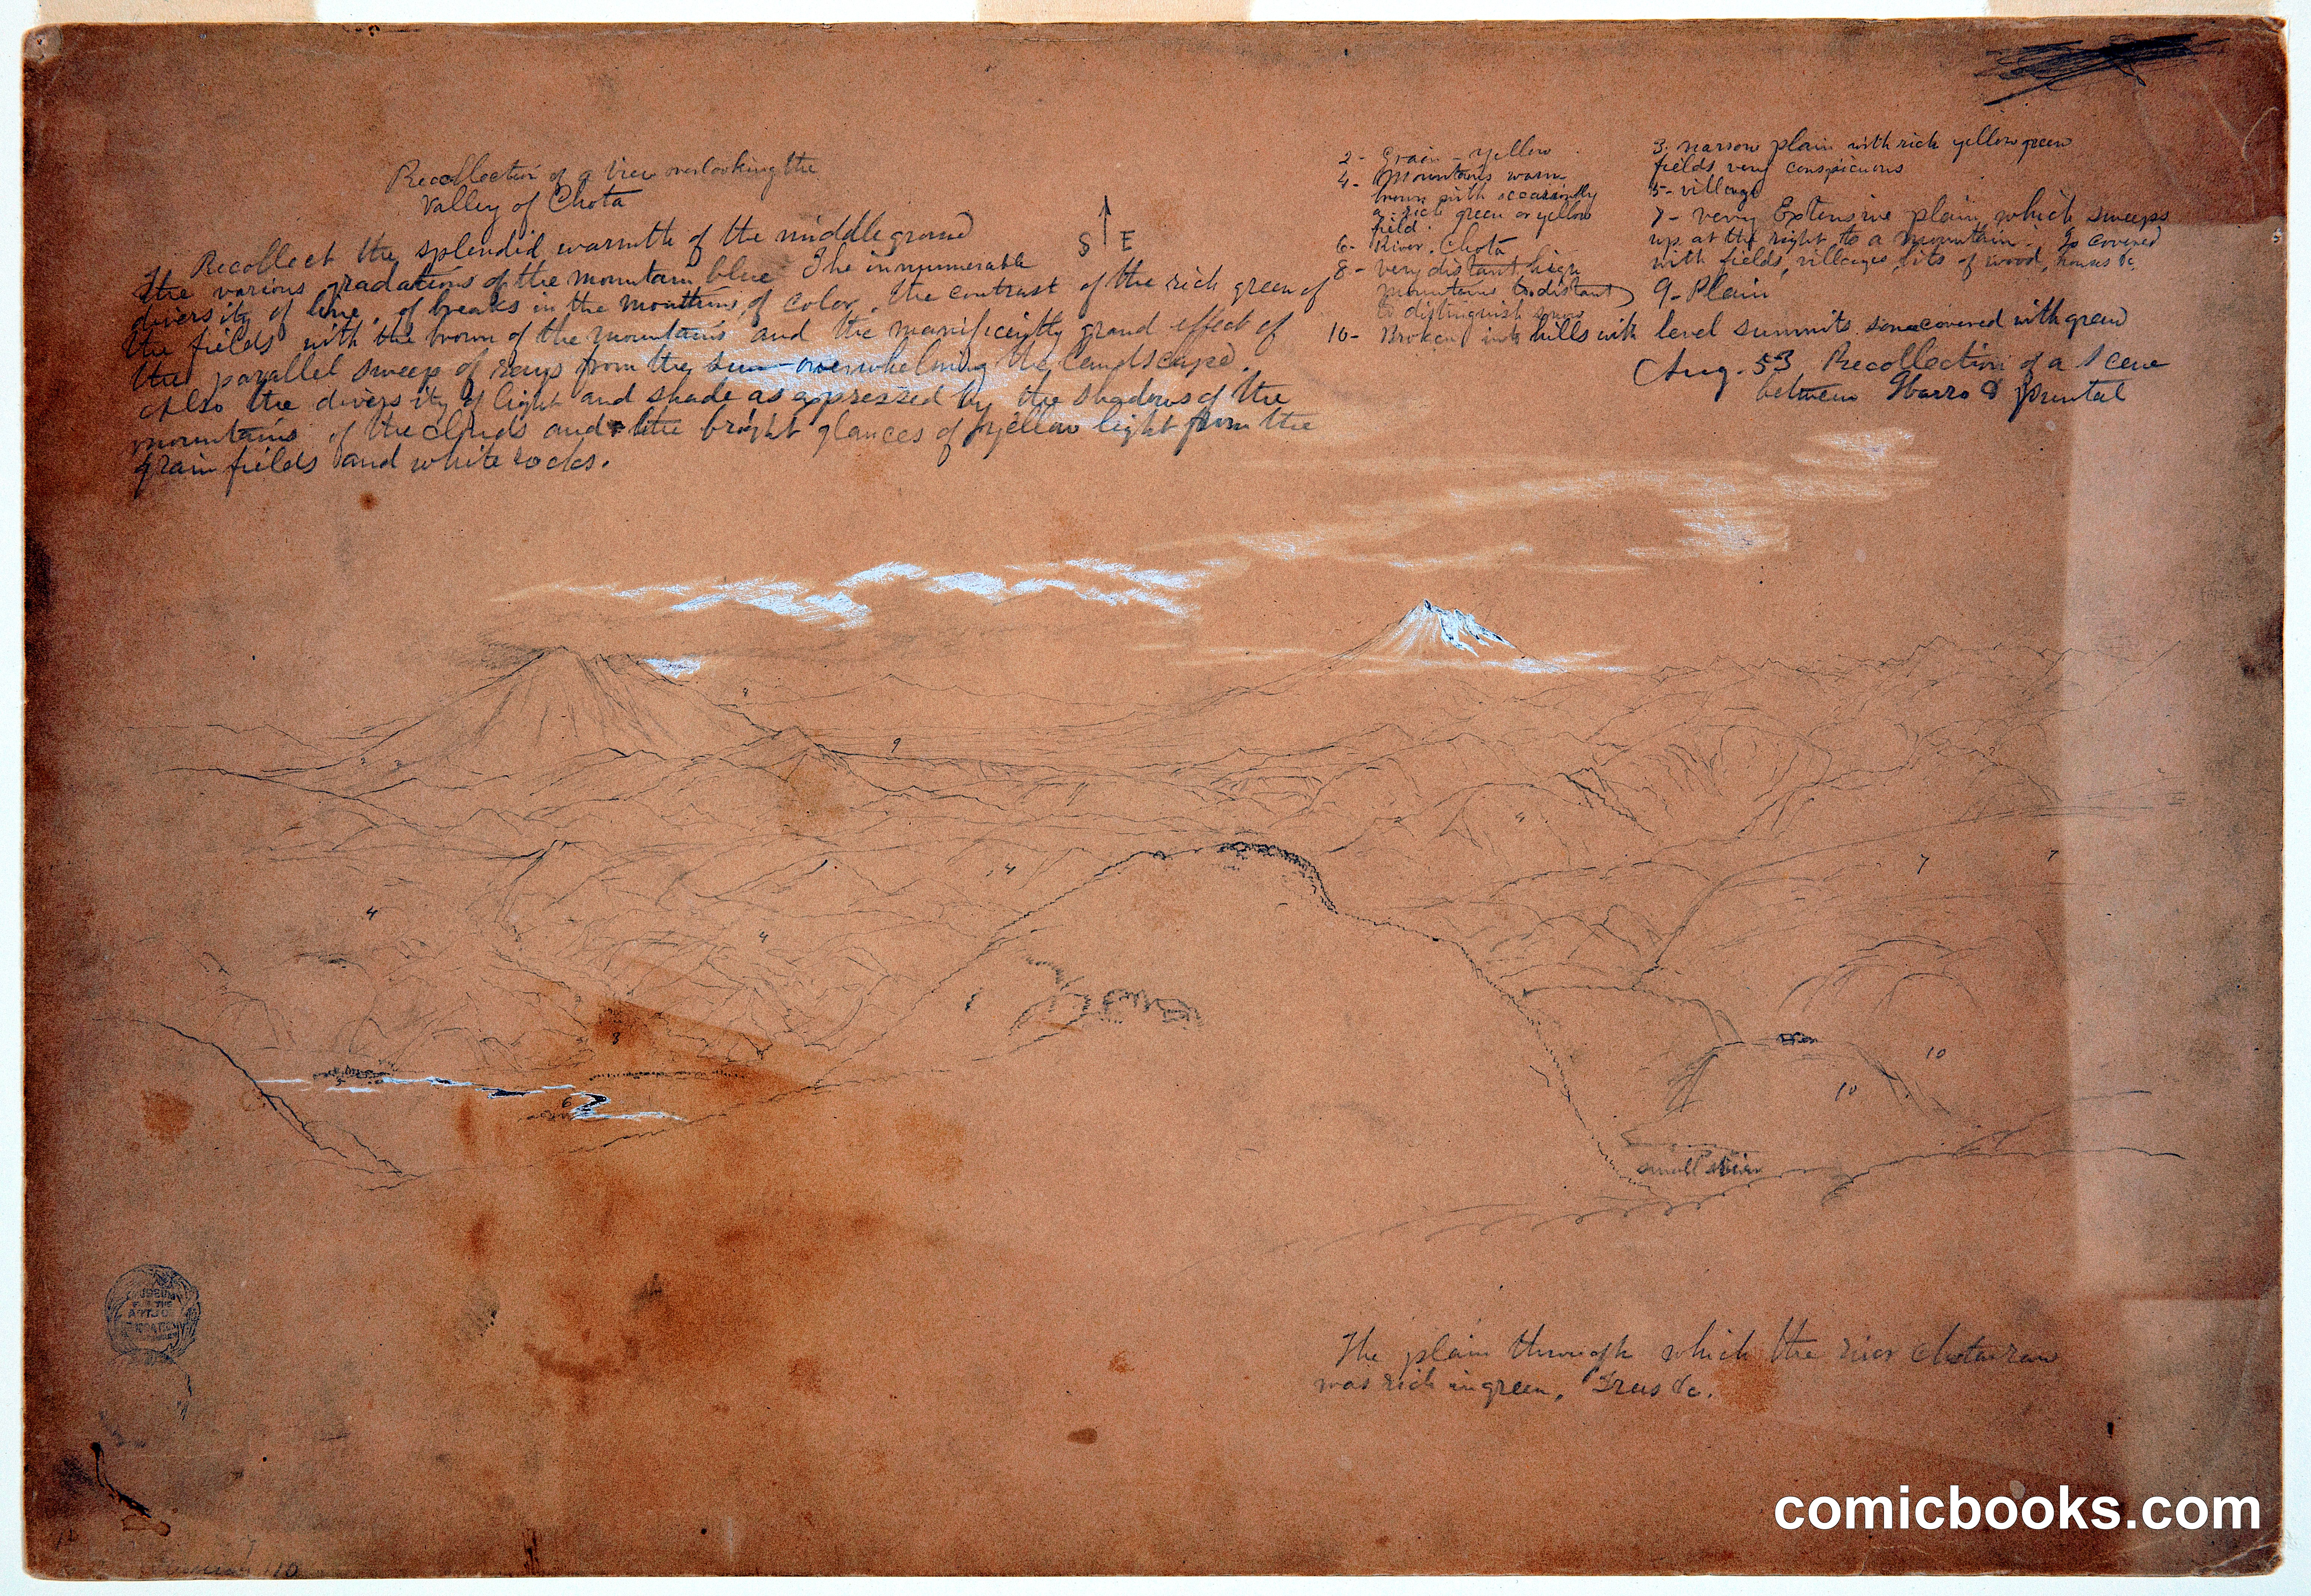 Recollection of a view overlooking the
Valley of Chota
Recollect the splendid warmth of the middleground
the various gradations of the mountain blue The innumerable
diversity of line, of breaks in the mountains, of color, the contrast of the rich green of
the fields with the brown of the mountains and the magnificently grand effect of
the parallel sweep of rays from the sun overwhelming the landscape.
Also the diversity of light and shade as expressed by the shadows of the
mountains of the clouds and the bright glances of yellow light from the
grain fields and white rocks.
S E
2- Grain - yellow
4- Mountains warm
brown with occasionally
a rich green or yellow
field.
6- River Chota
8- very distant high
mountains too distant
to distinguish snow
3. narrow plain with rich yellow green
fields very conspicuous
5- village
7- very Extensive plain which sweeps
up at the right to a mountain. Is covered
with fields, villages, bits of wood, houses &c
9- Plain
10- Broken into hills with level summits some covered with green
Aug. 53 Recollection of a Scene
between Ibarro & puntal
8
9
4
4
4
4
7
7
3
5
6
10
10
small
The plain through which the river Chota ran
was rich in green, Trees &c.
MUSEUM
FOR THE
ARTS OF
DECORATION
110
comicbooks.com